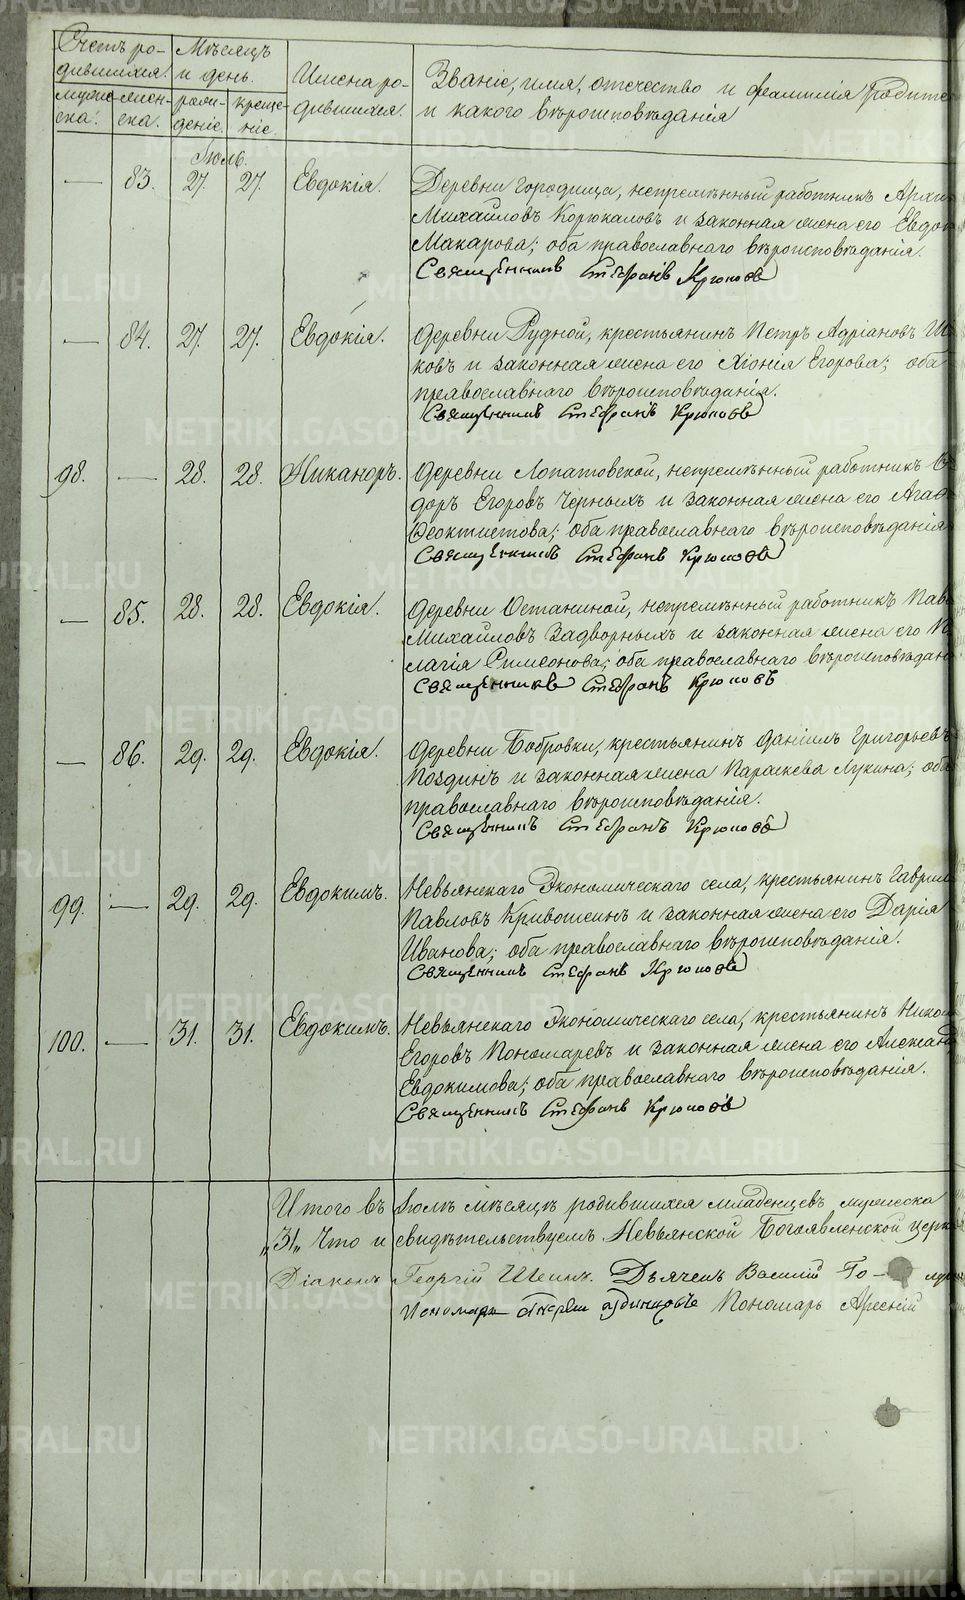 Счетъ ро-
дившихся.
Мѣсяцъ
и день.
Имена ро-
дившихся.
Званіе, имя, отчество и фамилія родите
и какого вѣроисповѣданія
муже-
ска.
жен-
ска.
рож-
деніе.
креще-
ніе.
Іюль.
— 83. 27. 27. Евдокія. Деревни Городища, непремѣнный работникъ Архи
Михайловъ Корюкаловъ и законная жена его Евдок
Макарова; оба православнаго вѣроисповѣданія.
Священникъ Стефанъ Крюковъ
— 84. 27. 27. Евдокія. Деревни Рудной, крестьянинъ Петръ Адріановъ
ковъ и законная жена его Хіонія Егорова; оба
православнаго вѣроисповѣданія.
Священникъ Стефанъ Крюковъ
98. — 28. 28. Никаноръ. Деревни Лопатовской, непремѣнный работникъ
доръ Егоровъ Черныхъ и законная жена его Агаф
Феоктистова; оба православнаго вѣроисповѣданія
Священникъ Стефанъ Крюковъ
— 85. 28. 28. Евдокія. Деревни Останиной, непремѣнный работникъ Паве
Михайловъ Задворныхъ и законная жена его
лагія Симеонова; оба православнаго вѣроисповѣдан
Священникъ Стефанъ Крюковъ
— 86. 29. 29. Евдокія. Деревни Бобровки, крестьянинъ Даніилъ Григорьевъ
Поздинъ и законная жена Параскева Лукина; оба
православнаго вѣроисповѣданія.
Священникъ Стефанъ Крюковъ
99. — 29. 29. Евдокимъ. Невьянскаго Экономическаго села, крестьянинъ Гаврии
Павловъ Кривошеинъ и законная жена его Дарія
Иванова; оба православнаго вѣроисповѣданія.
Священникъ Стефанъ Крюковъ
100. — 31. 31. Евдокимъ. Невьянскаго Экономическаго села, крестьянинъ Никол
Егоровъ Пономаревъ и законная жена его Александ
Евдокимова; оба православнаго вѣроисповѣданія.
Священникъ Стефанъ Крюковъ
Итого въ Іюлѣ мѣсяцѣ родившихся младенцевъ мужеска
„31„ Что и свидѣтельствуемъ. Невьянской Богоявленской церкв
Діаконъ Георгій Шеинъ. Дьячекъ Василій Го-
Пономарь Пономарь Арсеній
METRIKI.GASO-URAL.RU